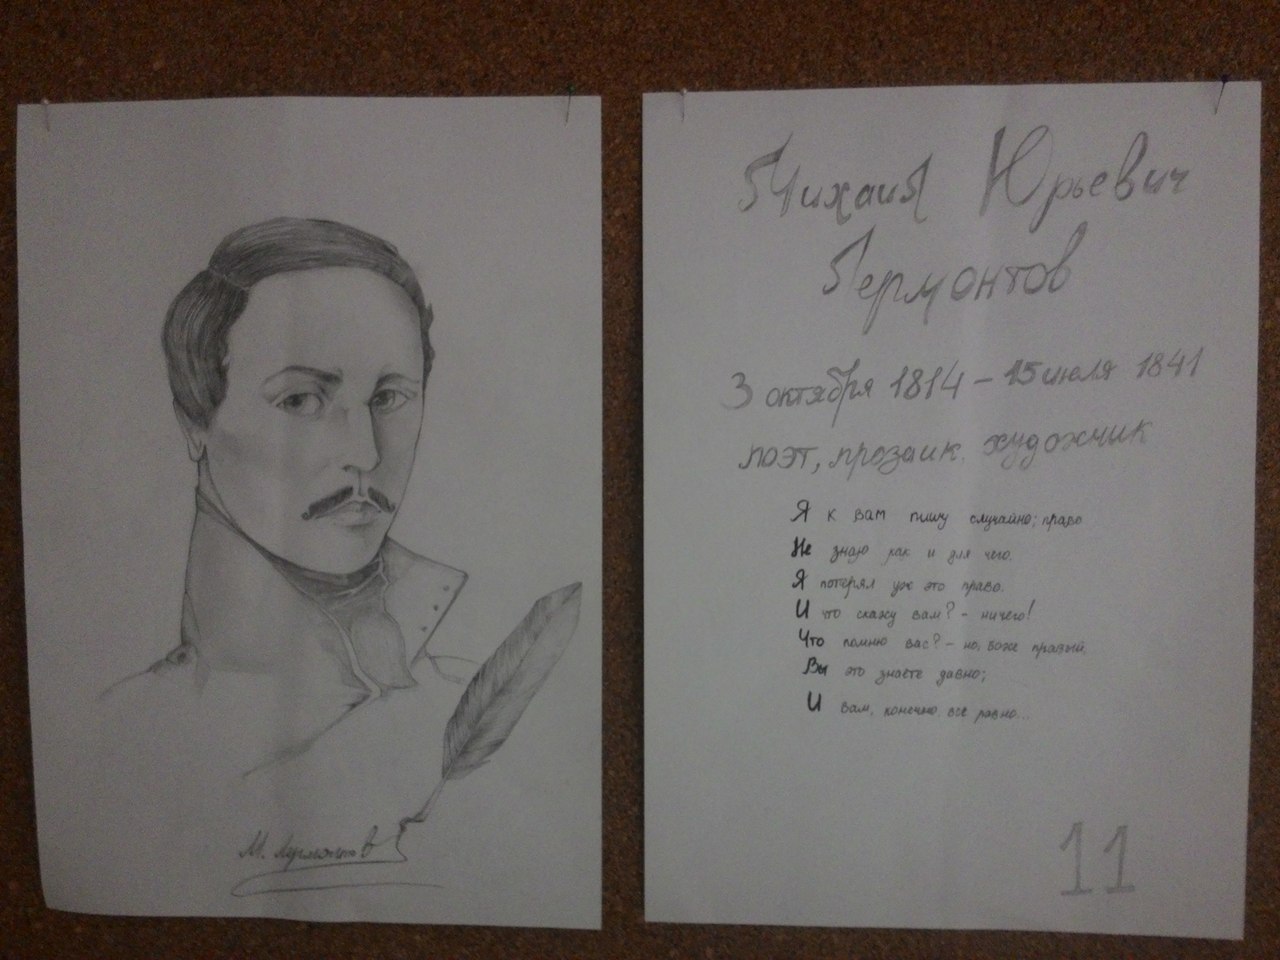 М. Лермонтов
Михаил Юрьевич
Лермонтов
3 октября 1814 – 15 июля 1841
поэт, прозаик художник
Я к вам пишу случайно; право
Не знаю как и для чего.
Я потерял уж это право.
И что скажу вам? – ничего!
Что помню вас? – но, боже правый,
Вы это знаете давно;
И вам, конечно, всё равно...
11